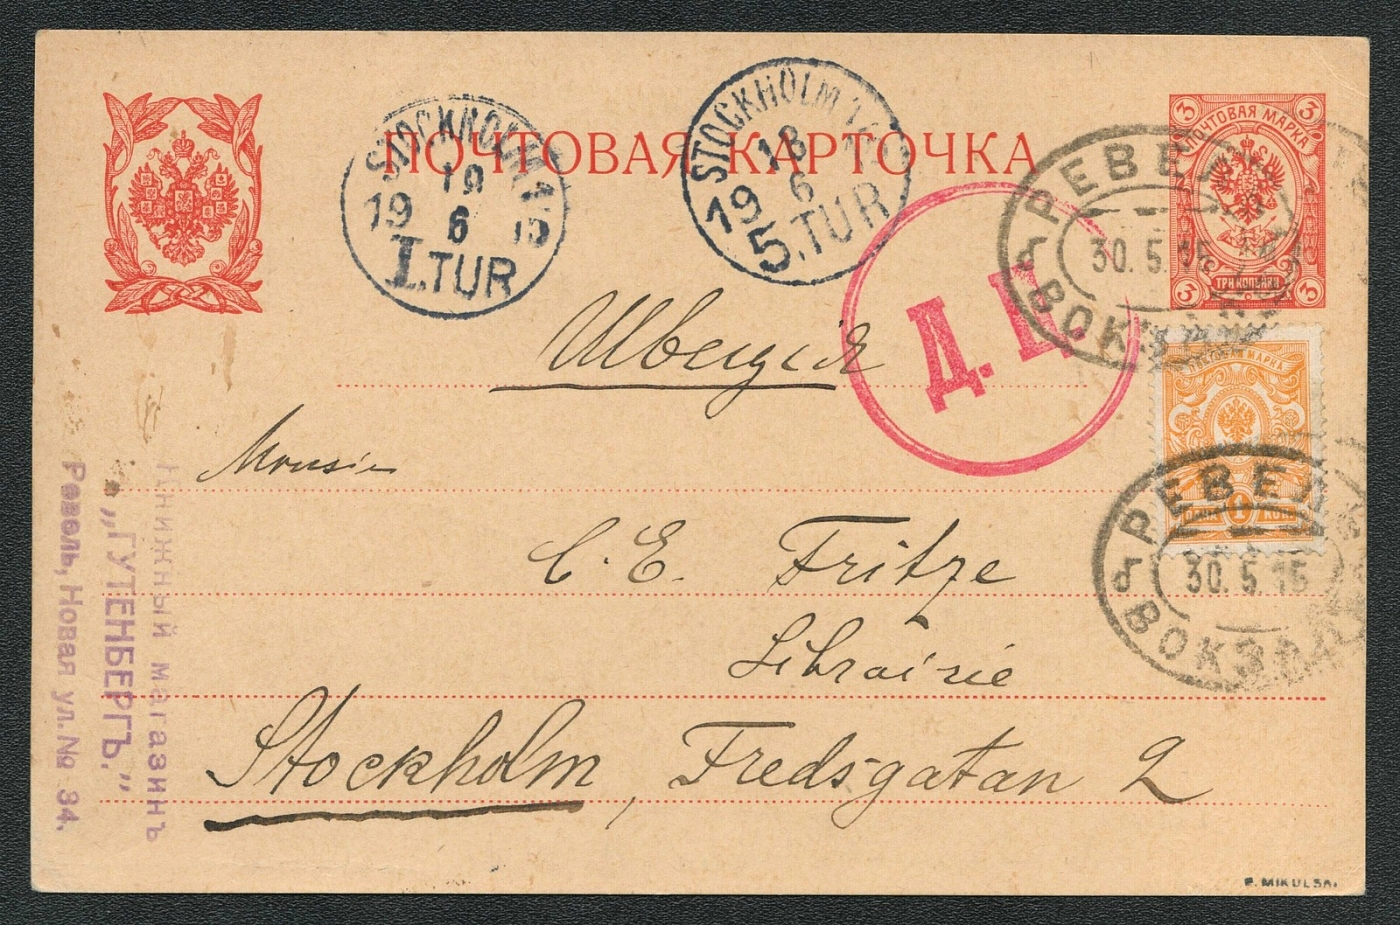 ПОЧТОВАЯ КАРТОЧКА
STOCKHOLM 1
19
19 6 15
1.TUR
STOCKHOLM 1
18
19 6
5.TUR
3 3
ПОЧТОВАЯ МАРКА
ТРИ КОПѢЙКИ
3 3
РЕВЕЛ
30.5.15
ВОКЗАЛ
Д. Ц.
Швеція
Monsie
C. E. Fritze
Librairie
Stockholm, Fredsgatan 2
ПОЧТОВАЯ МАРКА
1 КОП
РЕВЕЛ
30.5.15
ВОКЗАЛ
Книжный магазинъ
„ГУТЕНБЕРГЪ.“
Ревель, Новая ул. № 34.
P. MIKULSKI